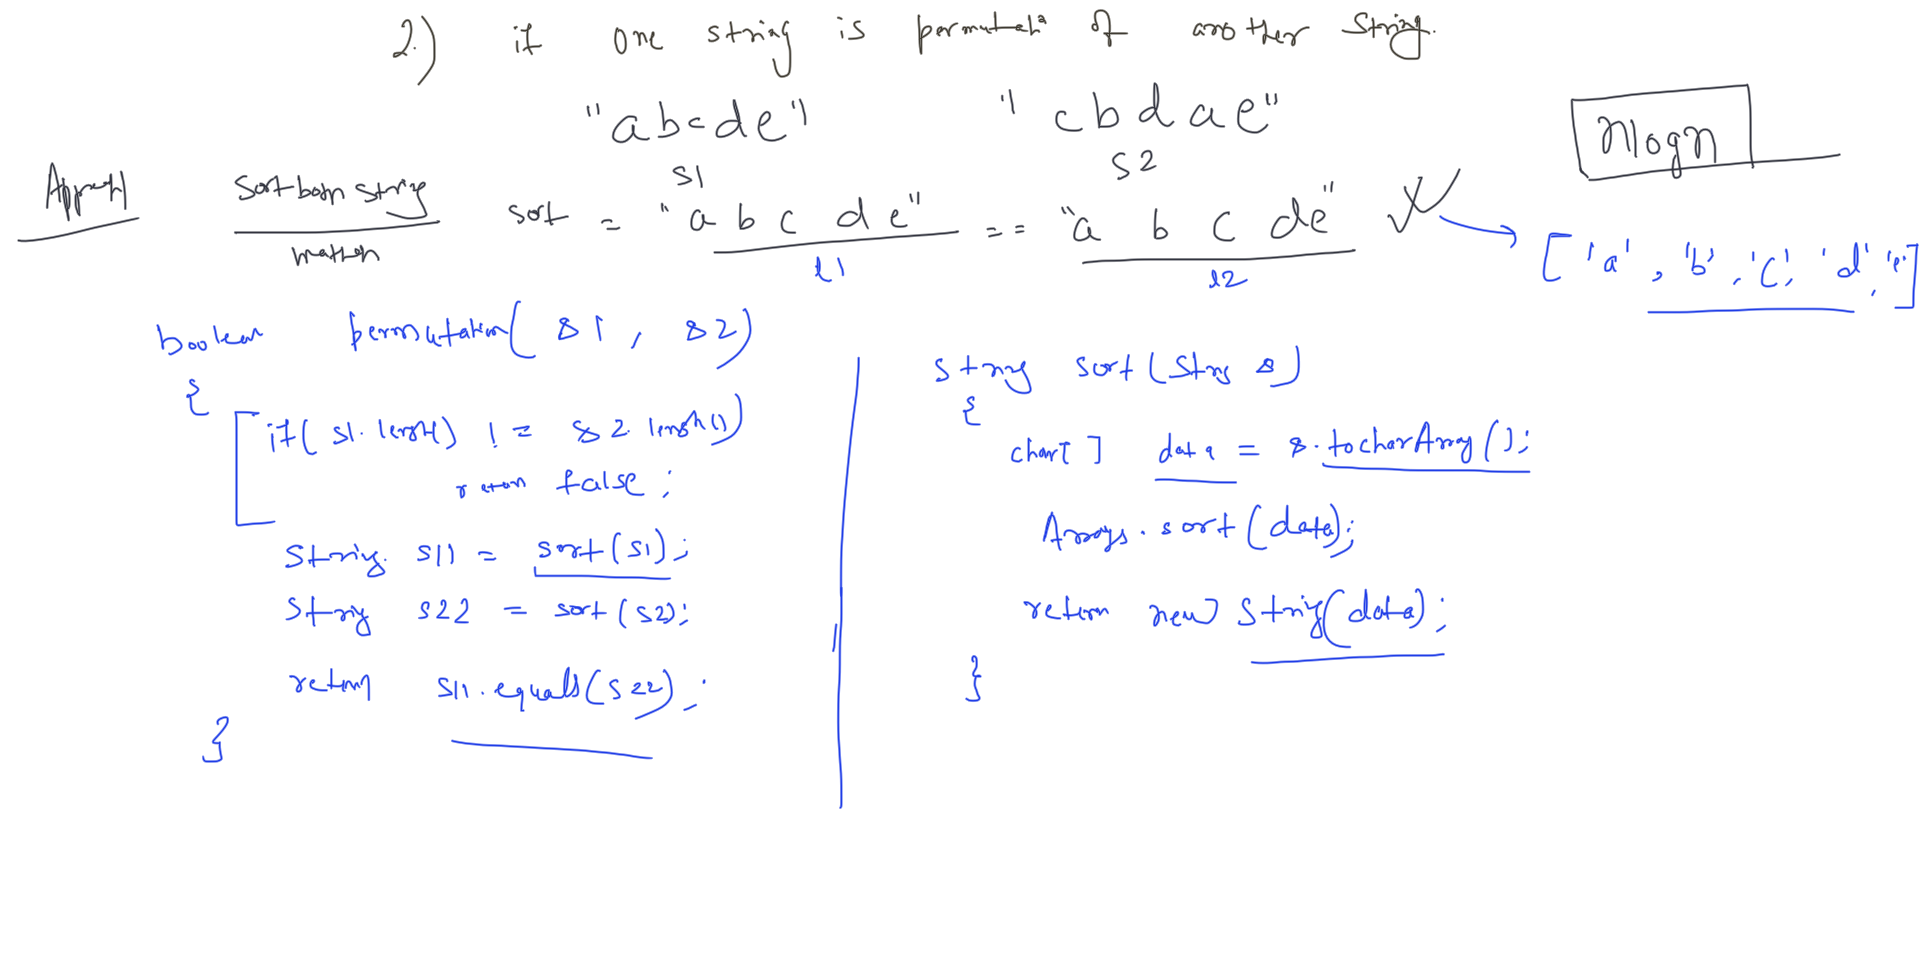 2.) if one string is permutatn of another String.
"abcde" "cbdae"
s1 s2
nlogn
Sort both string
match
sort = "a b c d e" == "a b c d e"
l1 l2
['a', 'b', 'c', 'd', 'e']
boolean permutation( s1, s2)
{
if( s1.length() != s2.length())
return false;
String s11 = sort(s1);
String s22 = sort(s2);
return s11.equals(s22);
}
String sort(String s)
{
char[] data = s.tocharArray();
Arrays.sort(data);
return new String(data);
}